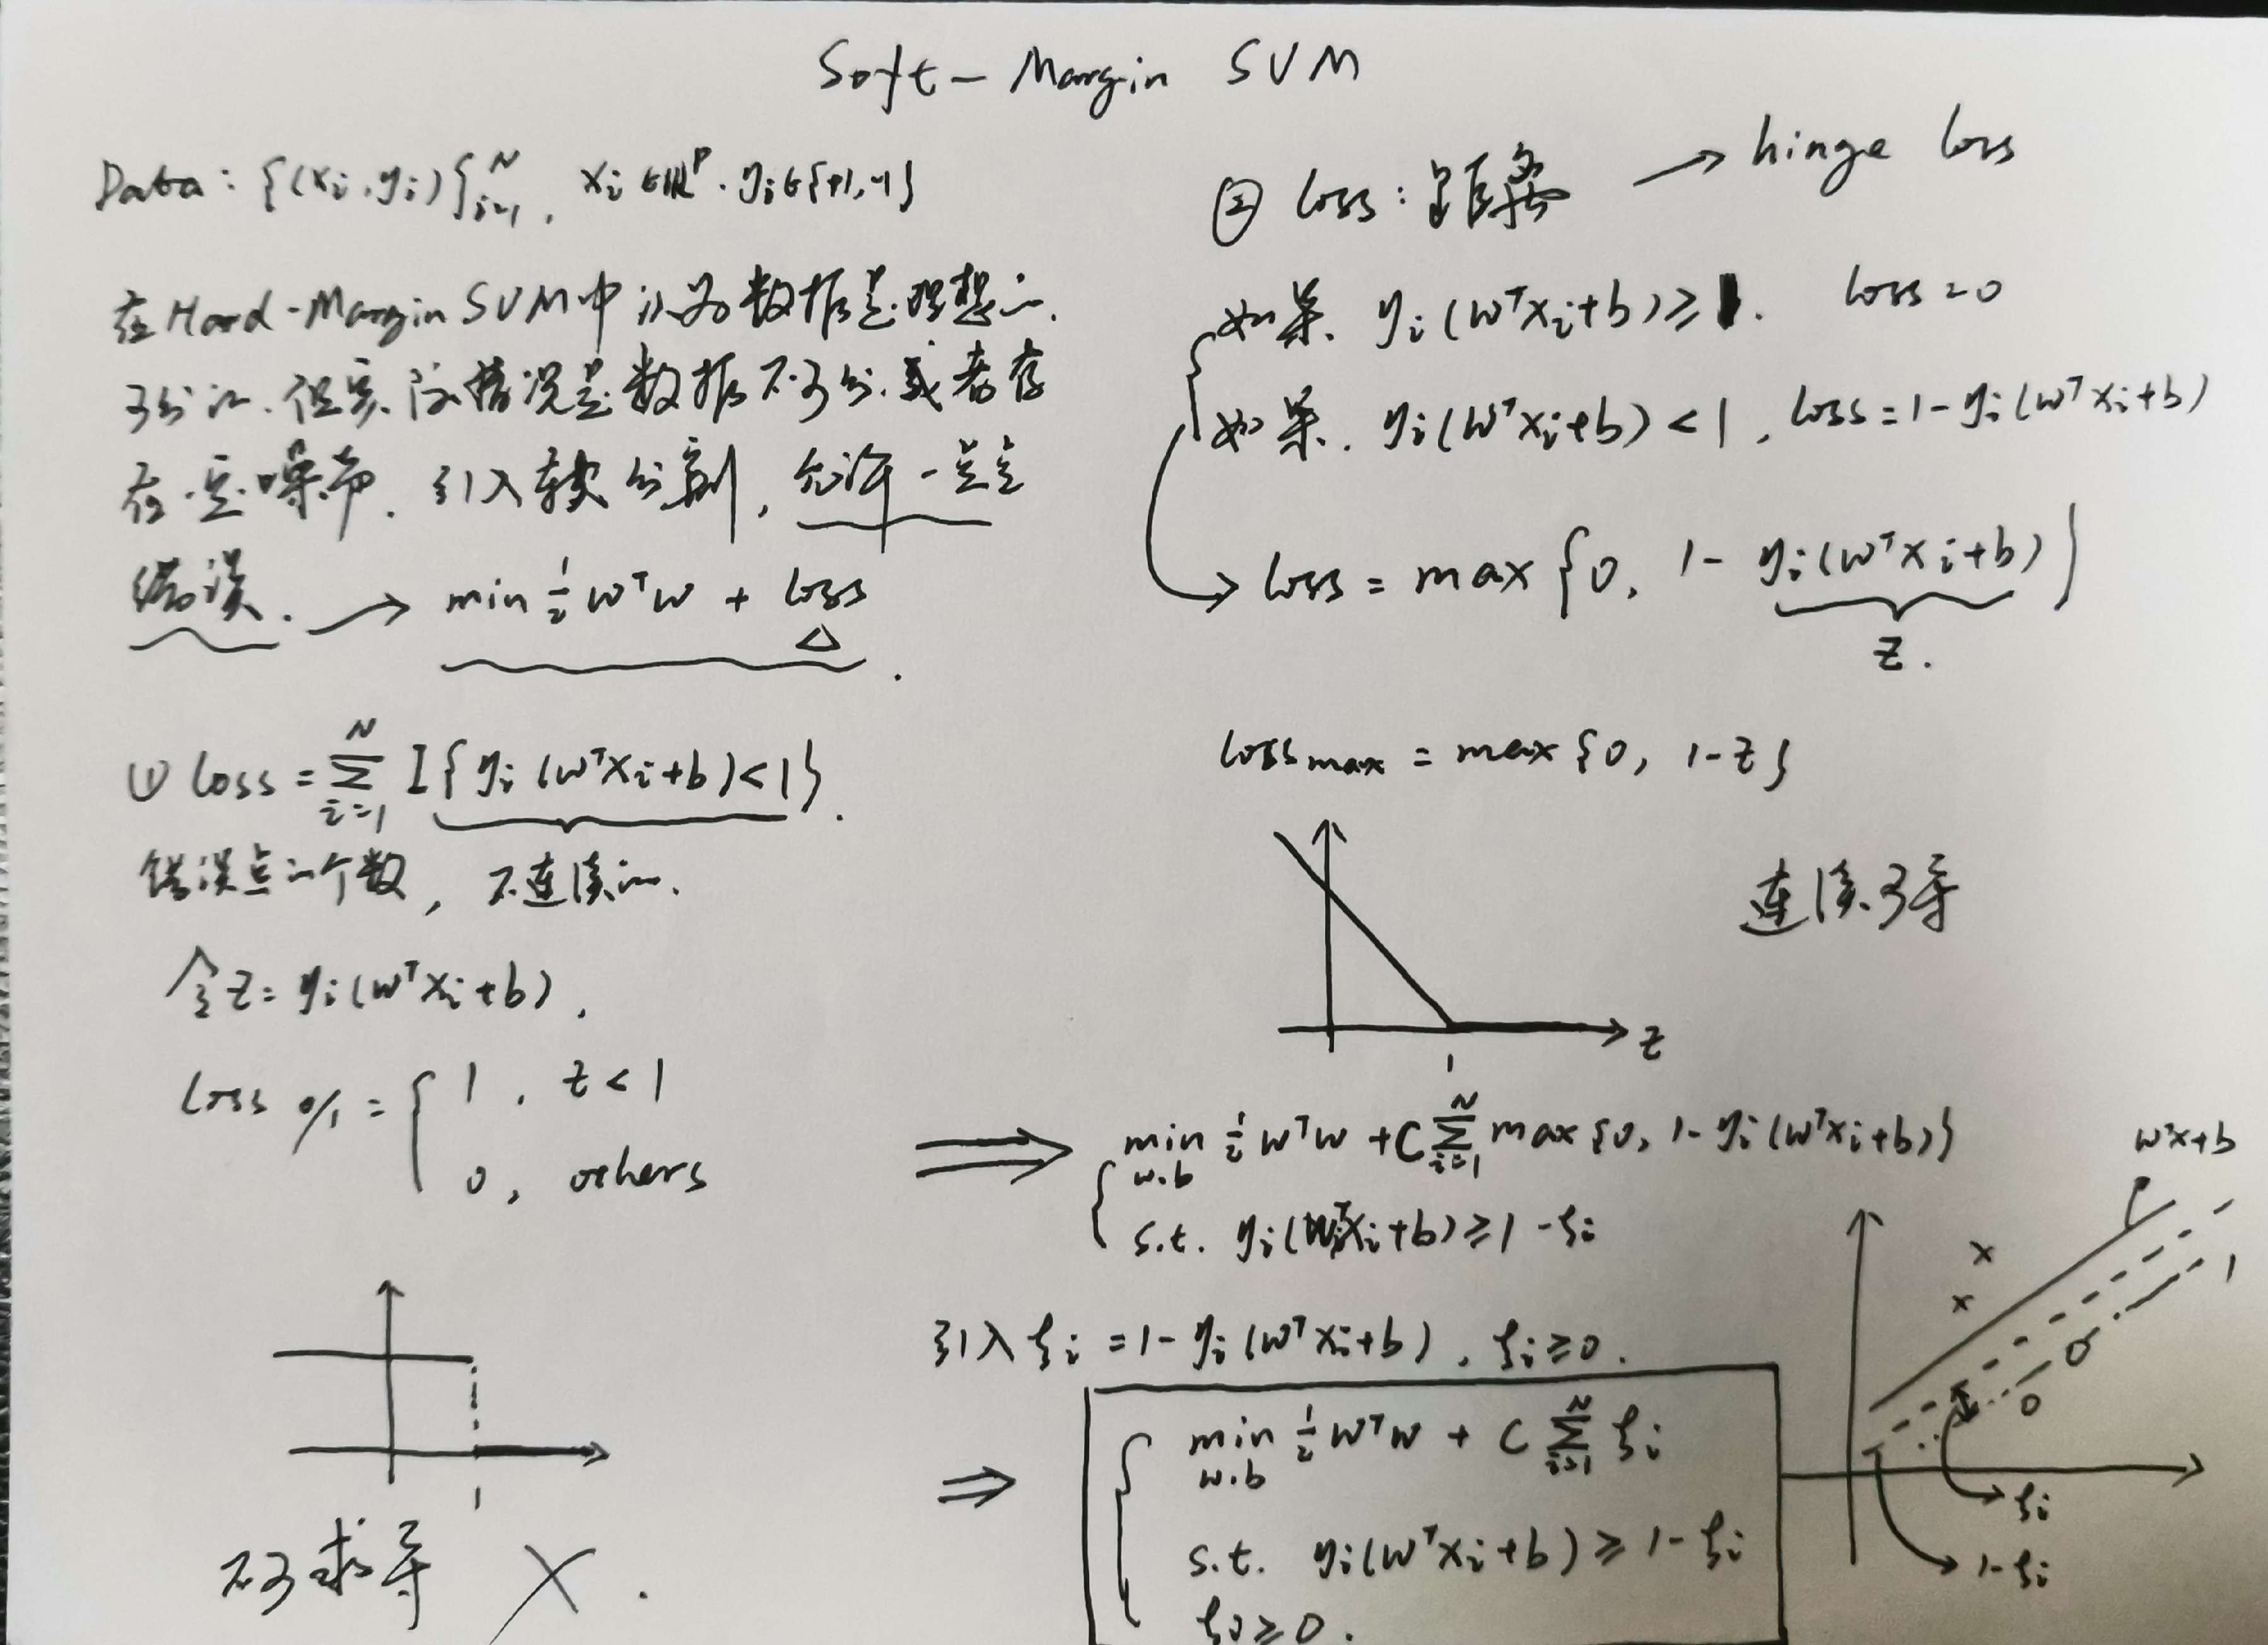 Soft-Margin SVM
Data: {(xi, yi)}_{i=1}^N, xi ∈ ℝ^p, yi ∈ {+1, -1}
在Hard-Margin SVM中认为数据是理想的.
可分的. 但实际情况是数据不可分. 或者存
在一定噪声. 引入软分割, 允许一点点
错误. → min 1/2 w^T w + loss
△
① loss = Σ_{i=1}^N I{yi(w^T xi+b)<1}.
错误点的个数, 不连续的.
令z = yi(w^T xi+b).
loss 0/1 = { 1, z<1
0, others
1
不可求导 ×.
② loss: 距离 → hinge loss
{ 如果. yi(w^T xi+b) ≥ 1. loss=0
如果. yi(w^T xi+b) < 1, loss = 1-yi(w^T xi+b)
→ loss = max{0, 1-yi(w^T xi+b)}
z.
loss max = max{0, 1-z}
连续可导
z
1
⇒ { min_{w.b} 1/2 w^T w + C Σ_{i=1}^N max{0, 1-yi(w^T xi+b)}
s.t. yi(w^T xi+b) ≥ 1-ξi
引入ξi = 1-yi(w^T xi+b), ξi ≥ 0.
⇒ { min_{w.b} 1/2 w^T w + C Σ_{i=1}^N ξi
s.t. yi(w^T xi+b) ≥ 1-ξi
ξi ≥ 0.
w^T x+b
1
ξi
1-ξi